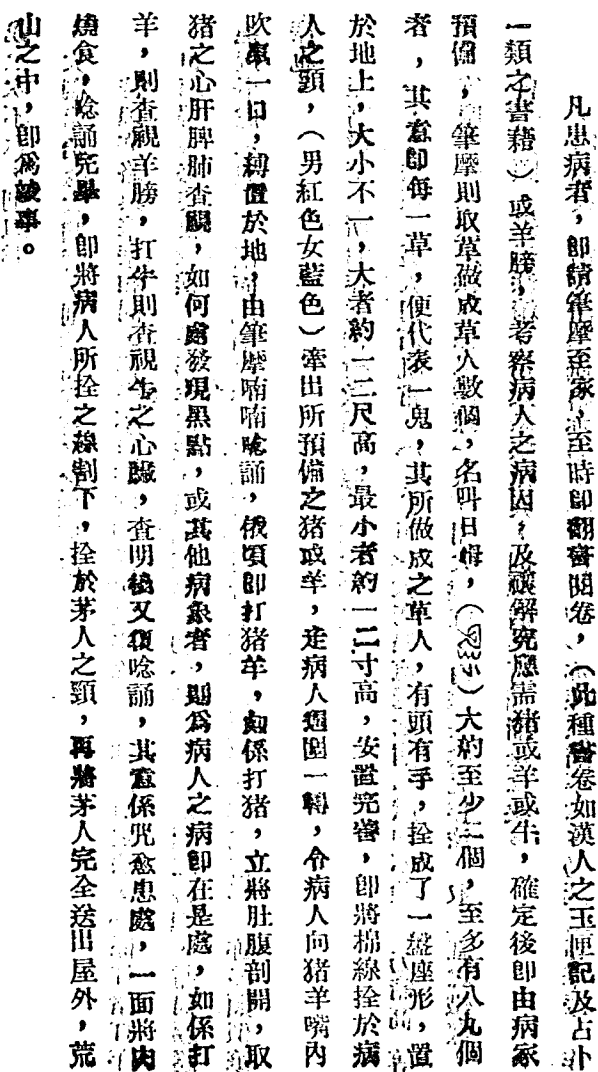 凡患病者，卽請筆摩至家，至時卽翻書閱卷，（此種書卷如漢人之玉匣記及占卜
一類之書籍）或羊膀，考察病人之病因，及禳解究應需猪或羊或牛，確定後卽由病家
預備，筆摩則取草做成草人數個，名叫日姆，（）大約至少二個，至多有八九個
者，其意卽每一草，便代表一鬼，其所做成之草人，有頭有手，拴成了一盤座形，置
於地上，大小不一，大者約一二尺高，最小者約一二寸高，安置完善，卽將棉線拴於病
人之頸，（男紅色女藍色）牽出所預備之猪或羊，走病人週圍一轉，令病人向猪羊嘴內
吹氣一口，縛置於地，由筆摩喃喃唸誦，俄頃卽打猪羊，如係打猪，立將肚腹剖開，取
猪之心肝脾肺查觀，如何處發現黑點，或其他病象者，則爲病人之病卽在是處，如係打
羊，則查視羊膀，打牛則查視牛之心臟，查明後又復唸誦，其意係咒愈患處，一面將肉
燒食，唸誦完畢，卽將病人所拴之線割下，拴於茅人之頸，再將茅人完全送出屋外，荒
山之中，卽爲竣事。